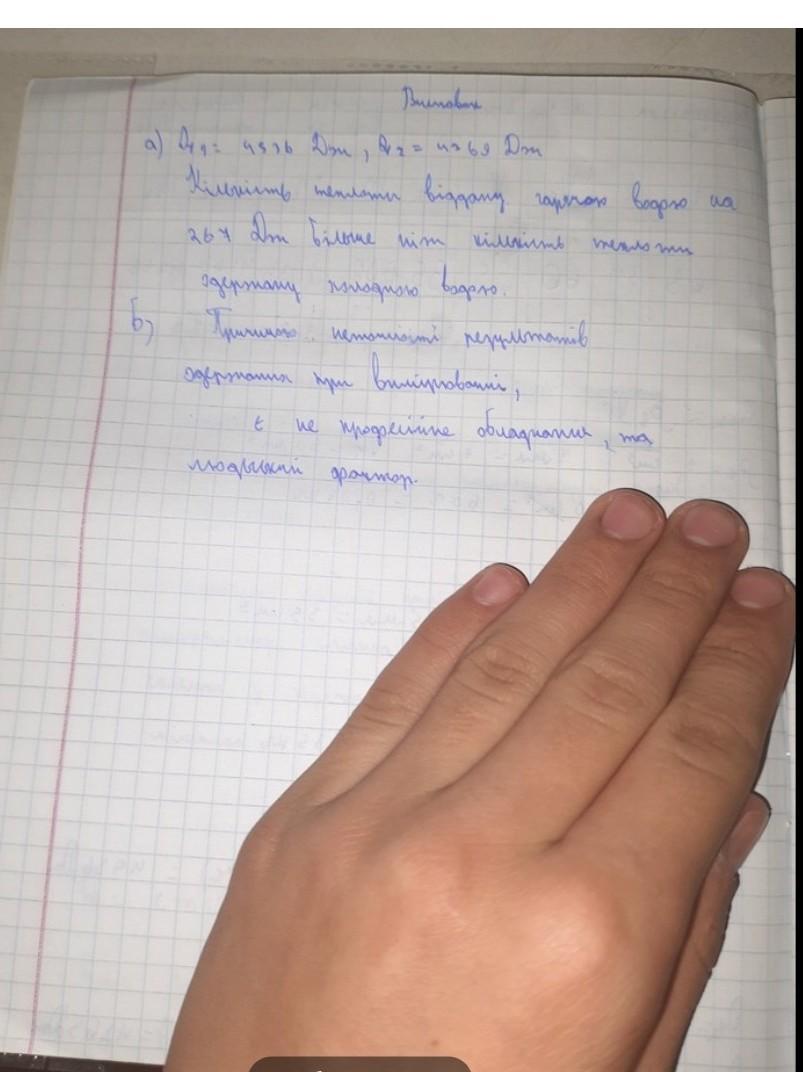 Висновок
a) Q₁ = 4536 Дж, Q₂ = 4269 Дж
Кількість теплоти віддану гарячою водою на
267 Дж більше ніж кількість теплоти
одержану холодною водою.
б) Причиною неточності результатів
одержання при вимірюванні,
є не професійне обладнання, та
людський фактор.